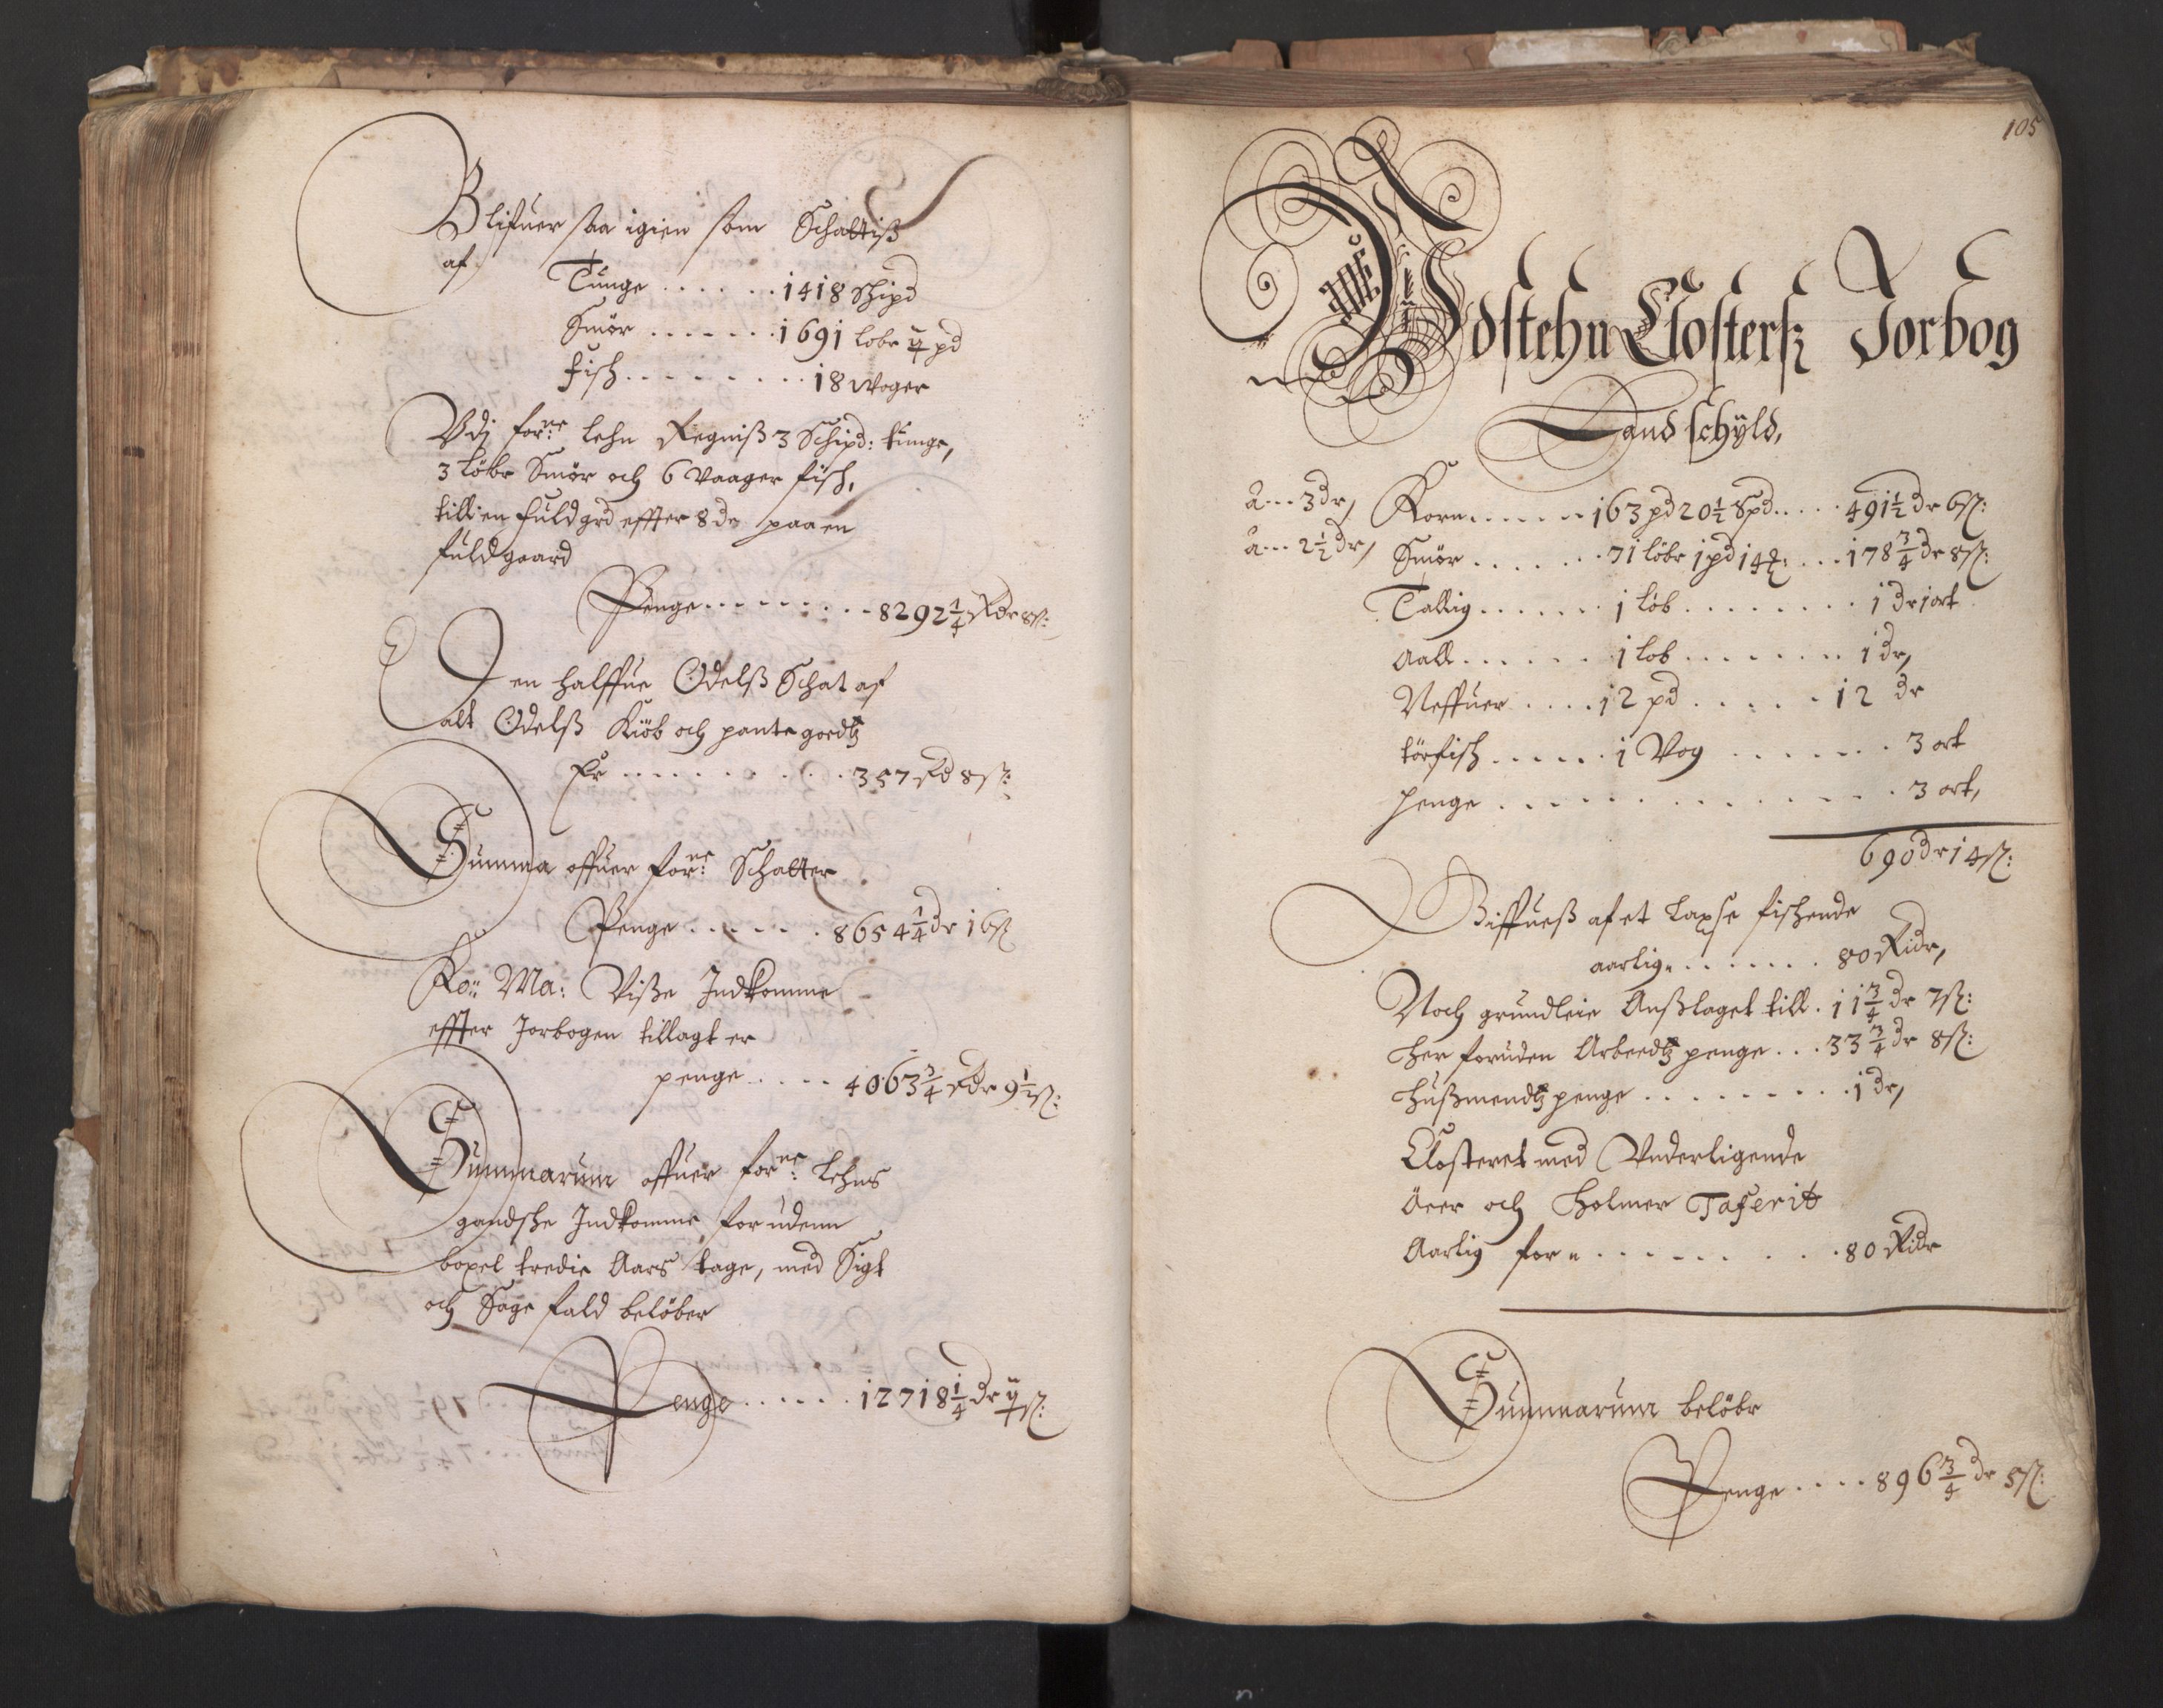 Blifuer saa igien som Schattiß
af.
Tunge . . . . . . 1418 Schipd
Smör . . . . . . . 1691 lobe ÿ pd
Fisch . . . . . . . . 18 Woger
Vdj forne: lehn Regniß 3 Schipd: tunge,
3 löbe Smör och 6 Vaager fisch,
till en fuld grd effter 8 dr paa en
fuldgaard
Penge . . . . . . . . . 8292 1/4 Rdr 8 ß:
Den halffue Odelß Schat af
alt Odelß Kiöb och pante goedtz
Er . . . . . . . . . . 357 Rd 8 ß:
Summa offuer forne: Schatter
Penge . . . . . . 8654 1/4 dr 16 ß
Ko: Ma: Viße Indkomme
effter Jorbogen tillagt er
penge . . . . 4063 3/4 Rdr 9 1/2 ß:
Summarum offuer forne: Lehns
gandsche Indkomme, forudenn
boxel tredie Aars tage, med Sigt
och Sage fald belöber
Penge . . . . . . 12718 1/4 dr ß:
105
Vdstehn Closterß Jorbog
Landschyld,
A - - - 3 dr, Korn . . . . . . 163 pd 20 1/2 Spd . . . . 491 1/2 dr 6 ß:
a - - - 2 1/2 dr, Smör . . . . . . 71 löbe 1 pd 14 . . . 178 3/4 dr 8 ß:
Tallig . . . . . . 1 löb . . . . . . . . 1 dr 1 ort
Aall . . . . . . 1 lob . . . . . . . 1 dr,
Neffuer . . . . 12 pd . . . . . 12 dr
törfisch . . . . . 1 Vog . . . . . . . 3 ort
penge . . . . . . . . . . . . . . 3 ort,
690 dr 14 ß:
Giffueß af et laxse fischende
aarlig . . . . . . . 80 Ridr,
Noch grundleie Anßlaget till . 11 3/4 dr 7 ß:
her foruden Arbeedtz penge . . . 33 3/4 dr 8 ß:
hußmendtz penge . . . . . . . . . 1 dr,
Closteret med Vnderligende
öeer och Holmer Taxerit
Aarlig for . . . . . . . . . . 80 Ridr
Summarum belöbr
Penge . . . . 896 3/4 dr 5 ß: